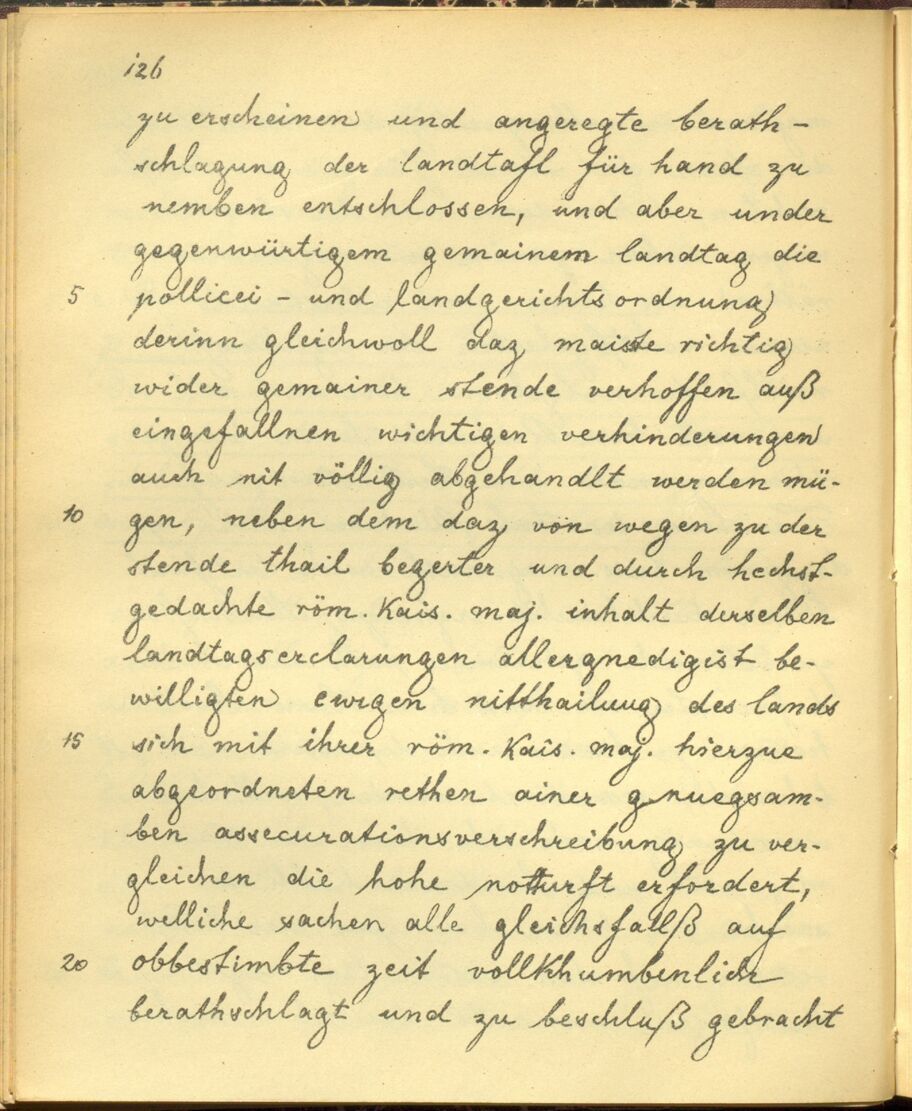 126
zu erscheinen und angeregte berath-
schlagung der landtafl für hand zu
nemben entschlossen, und aber under
gegenwürtigem gemainem landtag die
5 pollicei - und landgerichtsordnung
derinn gleichwoll daz maiste richtig
wider gemainer stende verhoffen auß
eingefallnen wichtigen verhinderungen
auch nit völlig abgehandlt werden mü-
10 gen, neben dem daz von wegen zu der
stende thail begerter und durch hechst-
gedachte röm. Kais. maj. inhalt derselben
landtagserclarungen allergnedigist be-
willigten ewigen nitthailung des lands
15 sich mit ihrer röm. Kais. maj. hierzue
abgeordneten rethen ainer genuegsam-
ben assecurationsverschreibung zu ver-
gleichen die hohe notturft erfordert,
welliche sachen alle gleichsfallß auf
20 obbestimbte zeit vollkhumbenlich
berathschlagt und zu beschluß gebracht